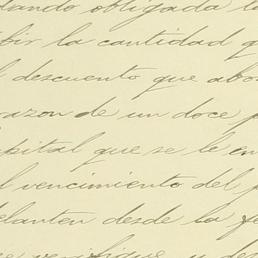 dando obligada la
bir la cantidad q
l descuento que abo
razon de un doce p
pital que se le en
l vencimiento del p
elanten desde la fe
se verifique y des